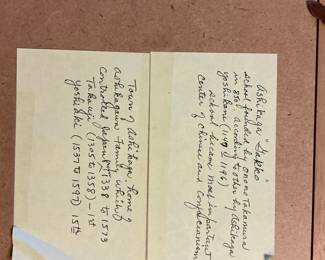 Ashikaga "Gakko"
school founded by Onono Takamura
in 836? according to other by Ashikaga
Yoshikane (1147 to 1196)
School became most important
center of Chinese and Confucianism
Town of Ashikaga home of
Ashikagawa Family which
controlled Japan fr 1338 to 1573
Takauji (1305 to 1358) - 1st
Yoshiaki (1537 to 1597) 15th